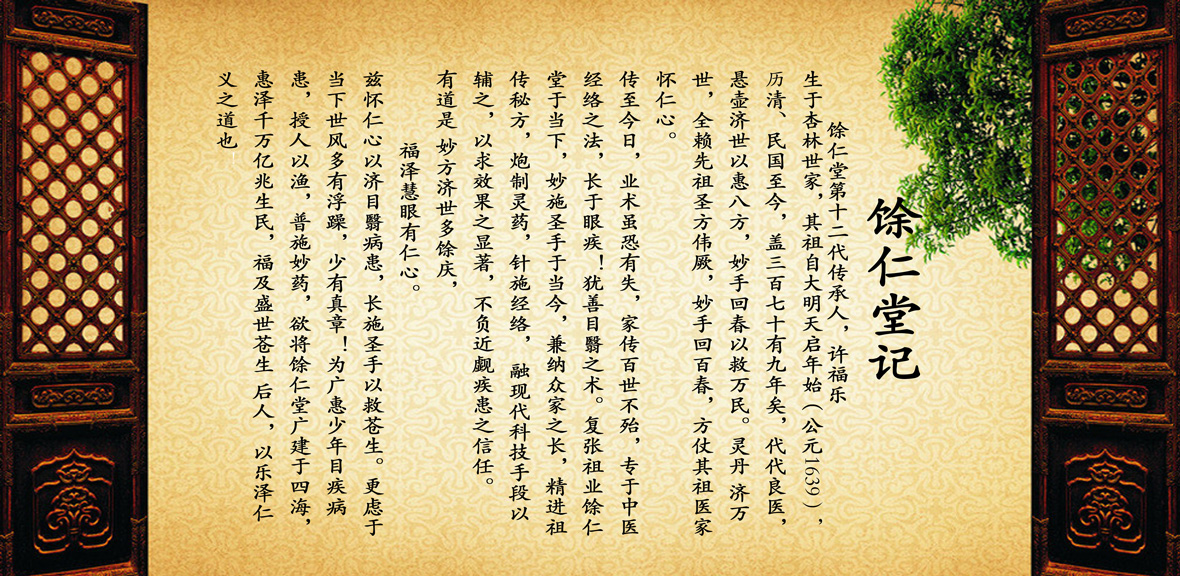 馀仁堂记
馀仁堂第十二代传承人，许福乐
生于杏林世家，其祖自大明天启年始（公元1639），
历清、民国至今，盖三百七十有九年矣，代代良医，
悬壶济世以惠八方，妙手回春以救万民。灵丹 济万
世，全赖先祖圣方伟厥，妙手回百春，方仗其祖医家
怀仁心。
传至今日，业术虽恐有失，家传百世不殆，专于中医
经络之法，长于眼疾！犹善目翳之术。复张祖业馀仁
堂于当下，妙施圣手于当今，兼纳众家之长，精进祖
传秘方，炮制灵药，针施经络，融现代科技手段以
辅之，以求效果之显著，不负近觑疾患之信任。
有道是 妙方济世多馀庆，
福泽慧眼有仁心。
兹怀仁心以济目翳病患，长施圣手以救苍生。更虑于
当下世风多有浮躁，少有真章！为广惠少年目疾病
患，授人以渔，普施妙药，欲将馀仁堂广建于四海，
惠泽千万亿兆生民，福及盛世苍生 后人，以乐泽仁
义之道也